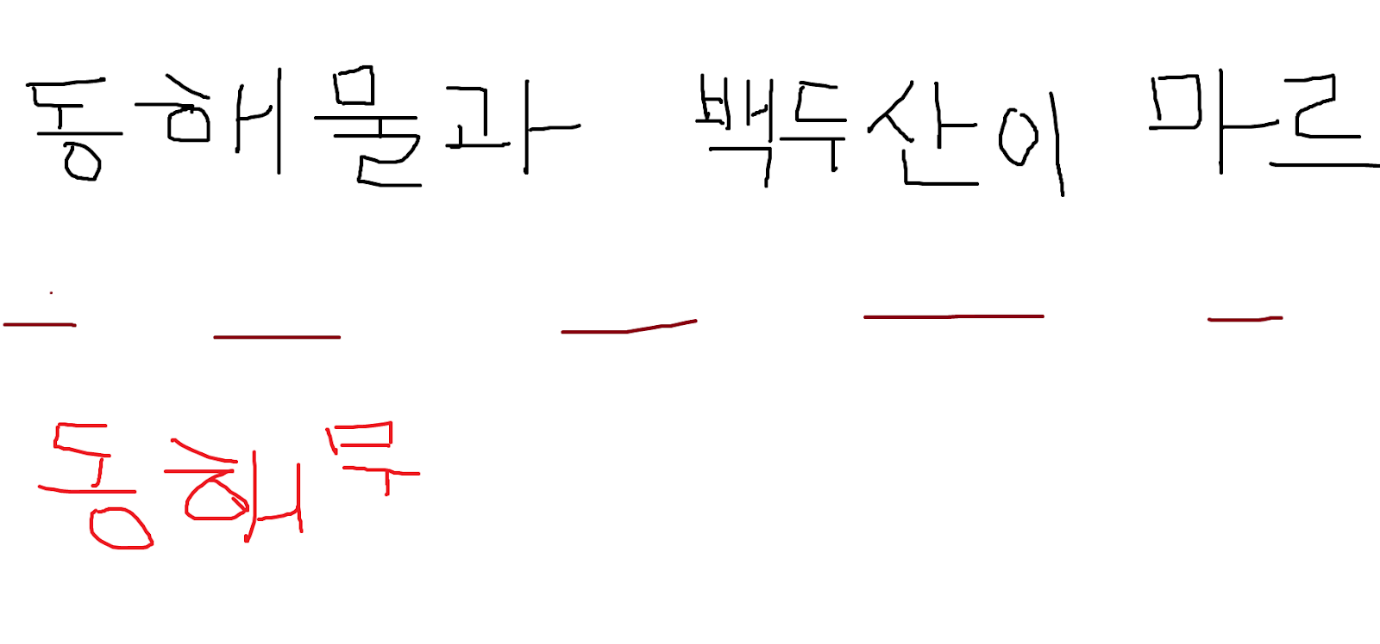 동해물과 백두산이 마르
동해무